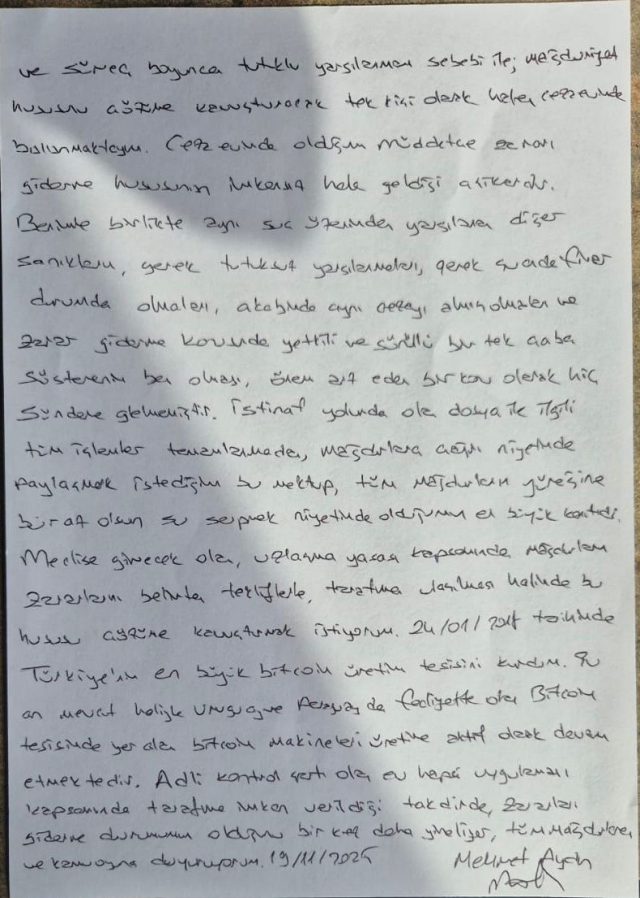 ve süreç boyunca tutuklu yargılanmam sebebi ile; mağduriyet
hususu çözüme kavuşturacak tek kişi olarak halen cezaevinde
bulunmaktayım. Cezaevinde olduğum müddetçe zararı
giderme hususunun imkansız hale geldiği aşikardır.
Benimle birlikte aynı suç üzerinden yargılanan diğer
sanıkların, gerek tutuksuz yargılanmaları, gerek şu anda firar
durumda olmaları, akabinde aynı cezayı almış olmaları ve
zarar giderme konusunda yetkili ve sürekli bir tek çaba
gösterenin ben olması, önem arz eden bir konu olarak hiç
gündeme gelmemiştir. İstinaf yolunda olan dosya ile ilgili
tüm işlemler tamamlanmadan, mağdurlara çağrı niyetinde
paylaşmak istediğim bu mektup, tüm mağdurların yüreğine
biraz olsun su serpmek niyetinde olduğumun en büyük kanıtıdır.
Meclise girecek olan, uzlaşma yasası kapsamında, mağdurların
zararlarını belirten tekliflerle, tarafıma ulaşılması halinde bu
hususu çözüme kavuşturmak istiyorum. 24/01/2018 tarihinde
Türkiye'nin en büyük bitcoin üretim tesisini kurdum. Şu
an mevcut haliyle Uruguay ve Paraguay da faaliyette olan Bitcoin
tesisinde yer alan bitcoin makineleri üretime aktif olarak devam
etmektedir. Adli kontrol şartı olan ev hapsi uygulaması
kapsamında tarafıma imkan verildiği takdirde, zararları
giderme durumunun olduğunu bir kez daha yineliyor, tüm mağdurlara
ve kamuoyuna duyuruyorum. 19/11/2025
Mehmet Aydın